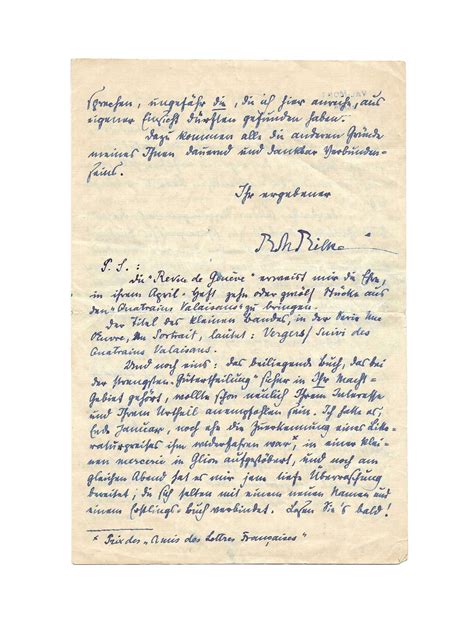 sprechen, ungefähr die, die ich hier anreihe, aus
eigener Einsicht dürften gefunden haben.
Dazu kommen alle die anderen Gründe
meines Ihnen dauernd und dankbar Verbunden-
seins.
Ihr ergebener
RMRilke
P. S.:
die "Revue de Genève" erweist mir die Ehre,
in ihrem April-Heft zehn oder zwölf Stücke aus
den "Quatrains Valaisans" zu bringen.
Der Titel des kleinen Bandes, in der Serie Une
Œuvre, Un Portrait, lautet: Vergers suivi des
Quatrains Valaisans.
Und noch eins: das beiliegende Buch, das bei
der strengsten "Gütertheilung" sicher in Ihr Macht-
Gebiet gehört, wollte schon neulich Ihrem Interesse
und Ihrem Urtheil anempfohlen sein. Ich hatte es,
Ende Januar, noch ehe die Zuerkennung eines Lite-
raturpreises ihm widerfahren war* in einer klei-
nen mercerie in Glion aufgestöbert, und noch am
gleichen Abend hat es mir jene tiefe Überraschung
bereitet, die sich selten mit einem neuen Namen und
einem Erstlings-buch verbindet. Lesen Sie's bald!
* Prix des "Amis des Lettres Françaises"